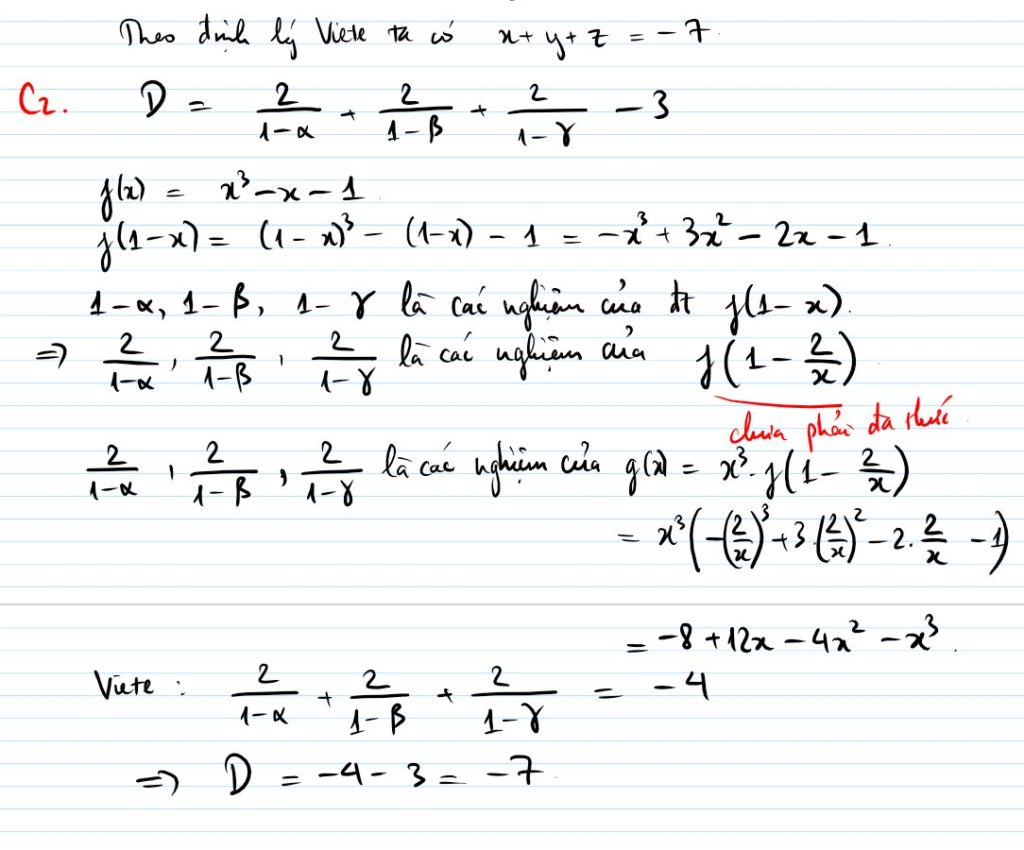 Theo định lý Viete ta có x + y + z = -7
C2. D = 2/(1-α) + 2/(1-β) + 2/(1-γ) - 3
f(x) = x³ - x - 1
f(1-x) = (1-x)³ - (1-x) - 1 = -x³ + 3x² - 2x - 1.
1-α, 1-β, 1-γ là các nghiệm của đt f(1-x).
⇒ 2/(1-α), 2/(1-β), 2/(1-γ) là các nghiệm của f(1 - 2/x)
chưa phải đa thức
2/(1-α), 2/(1-β), 2/(1-γ) là các nghiệm của g(x) = x³. f(1 - 2/x)
= x³(-(2/x)³ + 3(2/x)² - 2. 2/x - 1)
= -8 + 12x - 4x² - x³.
Viete : 2/(1-α) + 2/(1-β) + 2/(1-γ) = -4
⇒ D = -4 - 3 = -7